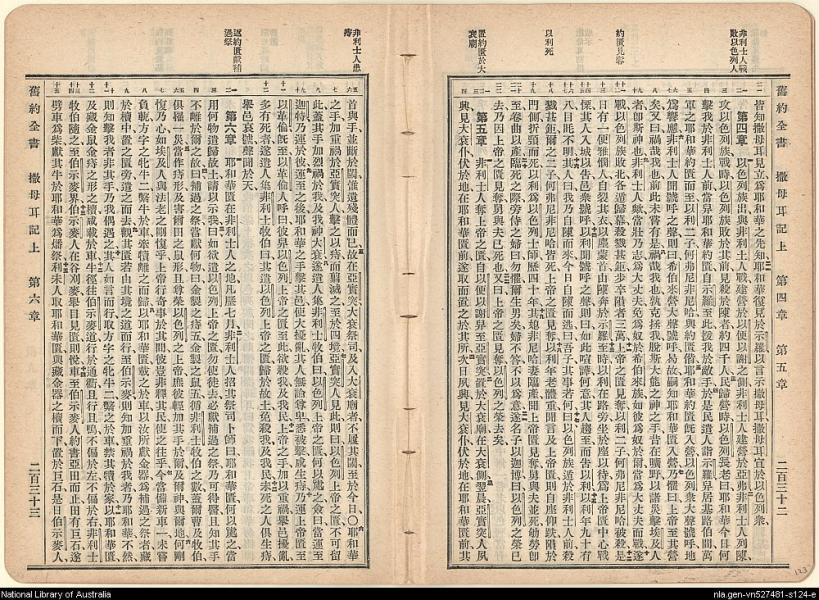 舊約全書 撒母耳記上 第四章 第五章 二百三十二
非利士人戰
敗以色列人
約匱見奪
以利死
置約匱於大
袞廟
皆知撒母耳見立爲耶和華之先知耶和華復見於示羅以言示撒母耳撒母耳宣於以色列衆
第四章 以色列族出與非利士人戰建營於以便以謝之側非利士人建營於亞弗非利士人列陳
攻以色列族戰時以色列族敗於其前見殺於陳者約四千人民歸營時以色列長老曰耶和華今日何
擊我於非利士人前當界耶和華約匱自示羅至此援我於敵手於是民遣人詣示羅舁居基路伯間萬
軍之耶和華約匱而至以利二子何弗尼非尼哈與約匱偕耶和華約匱旣入營以色列衆大聲號呼地
爲響應非利士人聞號呼之聲則曰希伯來營大聲號呼曷故嗣知耶和華匱入營乃懼曰上帝至其營
矣又曰禍哉我也前此未嘗有是禍哉我也孰克拯我脫斯大能之神之手昔在曠野以諸災擊埃及人
者卽斯神也非利士人歟當壯乃志爲大丈夫免爲奴於希伯來族如彼爲奴於爾當爲大丈夫而戰遂
戰以色列族敗北各遁歸幕殺戮甚鉅步卒隕者三萬上帝之匱見奪以利二子何弗尼非尼哈被殺是
日有一便雅憫人自裂其衣以塵蒙首由陳奔於示羅至時以利在路旁坐於座以待爲上帝匱中心戰
慄其人入城以告邑衆號呼以利聞號呼之聲則曰如此喧譁何意其人趨至而告以利以利年九十有
八目眊不明其人曰我乃自陳而來今日自陳而逃曰吾子其事若何對曰以色列族遁於非利士人前殺
戮甚鉅爾之二子何弗尼非尼哈皆死上帝之匱見奪以利年老體重聞言及上帝匱則自座仰趺隕於
門側折頸而死以利爲以色列士師歷四十年其媳非尼哈妻臨產聞上帝匱見奪舅與夫並死劬勞卽
至卷曲以產臨死之際旁侍之婦曰勿懼爾生男矣婦不答不以爲意遂名子以迦博曰以色列之榮已
去乃因上帝之匱見奪舅與夫已死也又曰上帝之匱見奪以色列之榮去矣
第五章 非利士人奪上帝之匱自以便以謝舁至亞實突置於大袞廟在大袞側翌晨亞實突人夙
興見大袞仆伏於地在耶和華匱前遂取而置之於其所次日夙興見大袞仆伏於地在耶和華匱前其
舊約全書 撒母耳記上 第六章 二百三十三
非利士人患
痔
返約匱獻補
過祭
首與手並斷於閾惟遺殘體而已故在亞實突大袞祭司及入大袞廟者不履其閾至於今日〇耶和華
之手加重禍於亞實突人擊之以痔而翦滅之至於四境亞實突人見此則曰以色列上帝之匱不可留
此蓋其手加烈禍於我及我神大袞遂遣人集非利士牧伯曰以色列上帝之匱何以處之僉曰當運至
迦特乃運於彼運至之後耶和華之手擊其邑使大擾亂其人無論尊卑悉被擊成生痔乃運上帝匱至
以革倫旣至以革倫人呼曰彼舁以色列上帝之匱至此欲殺我及我民上帝之手加以重禍舉邑擾亂
多有死者遂遣人集非利士牧伯曰其遣以色列上帝之匱歸於故土免殺我及我民未死之人俱生痔
舉邑哀號聲聞於天
第六章 耶和華匱在非利士人之地凡歷七月非利士人招其祭司卜師曰耶和華匱何以處之當
用何物遣於故土請以示我曰如欲遣以色列上帝之匱勿使徒去必獻補過之祭乃可得醫且知其手
不離於爾之故曰補過之祭當獻何物曰金製之痔五金製之鼠五循非利士牧伯之數蓋爾曹及牧伯
俱罹一災當作痔形及害爾田之鼠形且尊榮以色列之上帝庶彼輕加其手於爾及爾神與爾地何剛
愎乃心如埃及人與法老之剛愎乎上帝行奇事於其間彼豈非釋其民使之往乎今當備新車一未嘗
負軛方字之牝牛二繫牛於車牽犢離之而歸以耶和華匱載之於車以汝所獻金器爲補過之祭者藏
於櫝中置之匱旁遣之而去觀其匱若由其境之道而行至伯示麥則知加重禍於我者乃耶和華不然
則知擊我者非其手乃我偶遇之其人如言而行取方字之牝牛二繫之於車禁其犢於家以耶和華匱
及藏金鼠金痔之形之櫝咸載於車牛徑往伯示麥道行於通衢且行且鳴不偏於左不偏於右非利士
牧伯隨之至伯示麥界伯示麥人在谷刈麥舉目見匱則悅車至伯示麥人約書亞田而止田有巨石遂
劈車爲柴獻其牛於耶和華爲燔祭利未人取耶和華匱與藏金器之櫝而下置於巨石是日伯示麥人
National Library of Australia
nla.gen-vn527481-s124-e